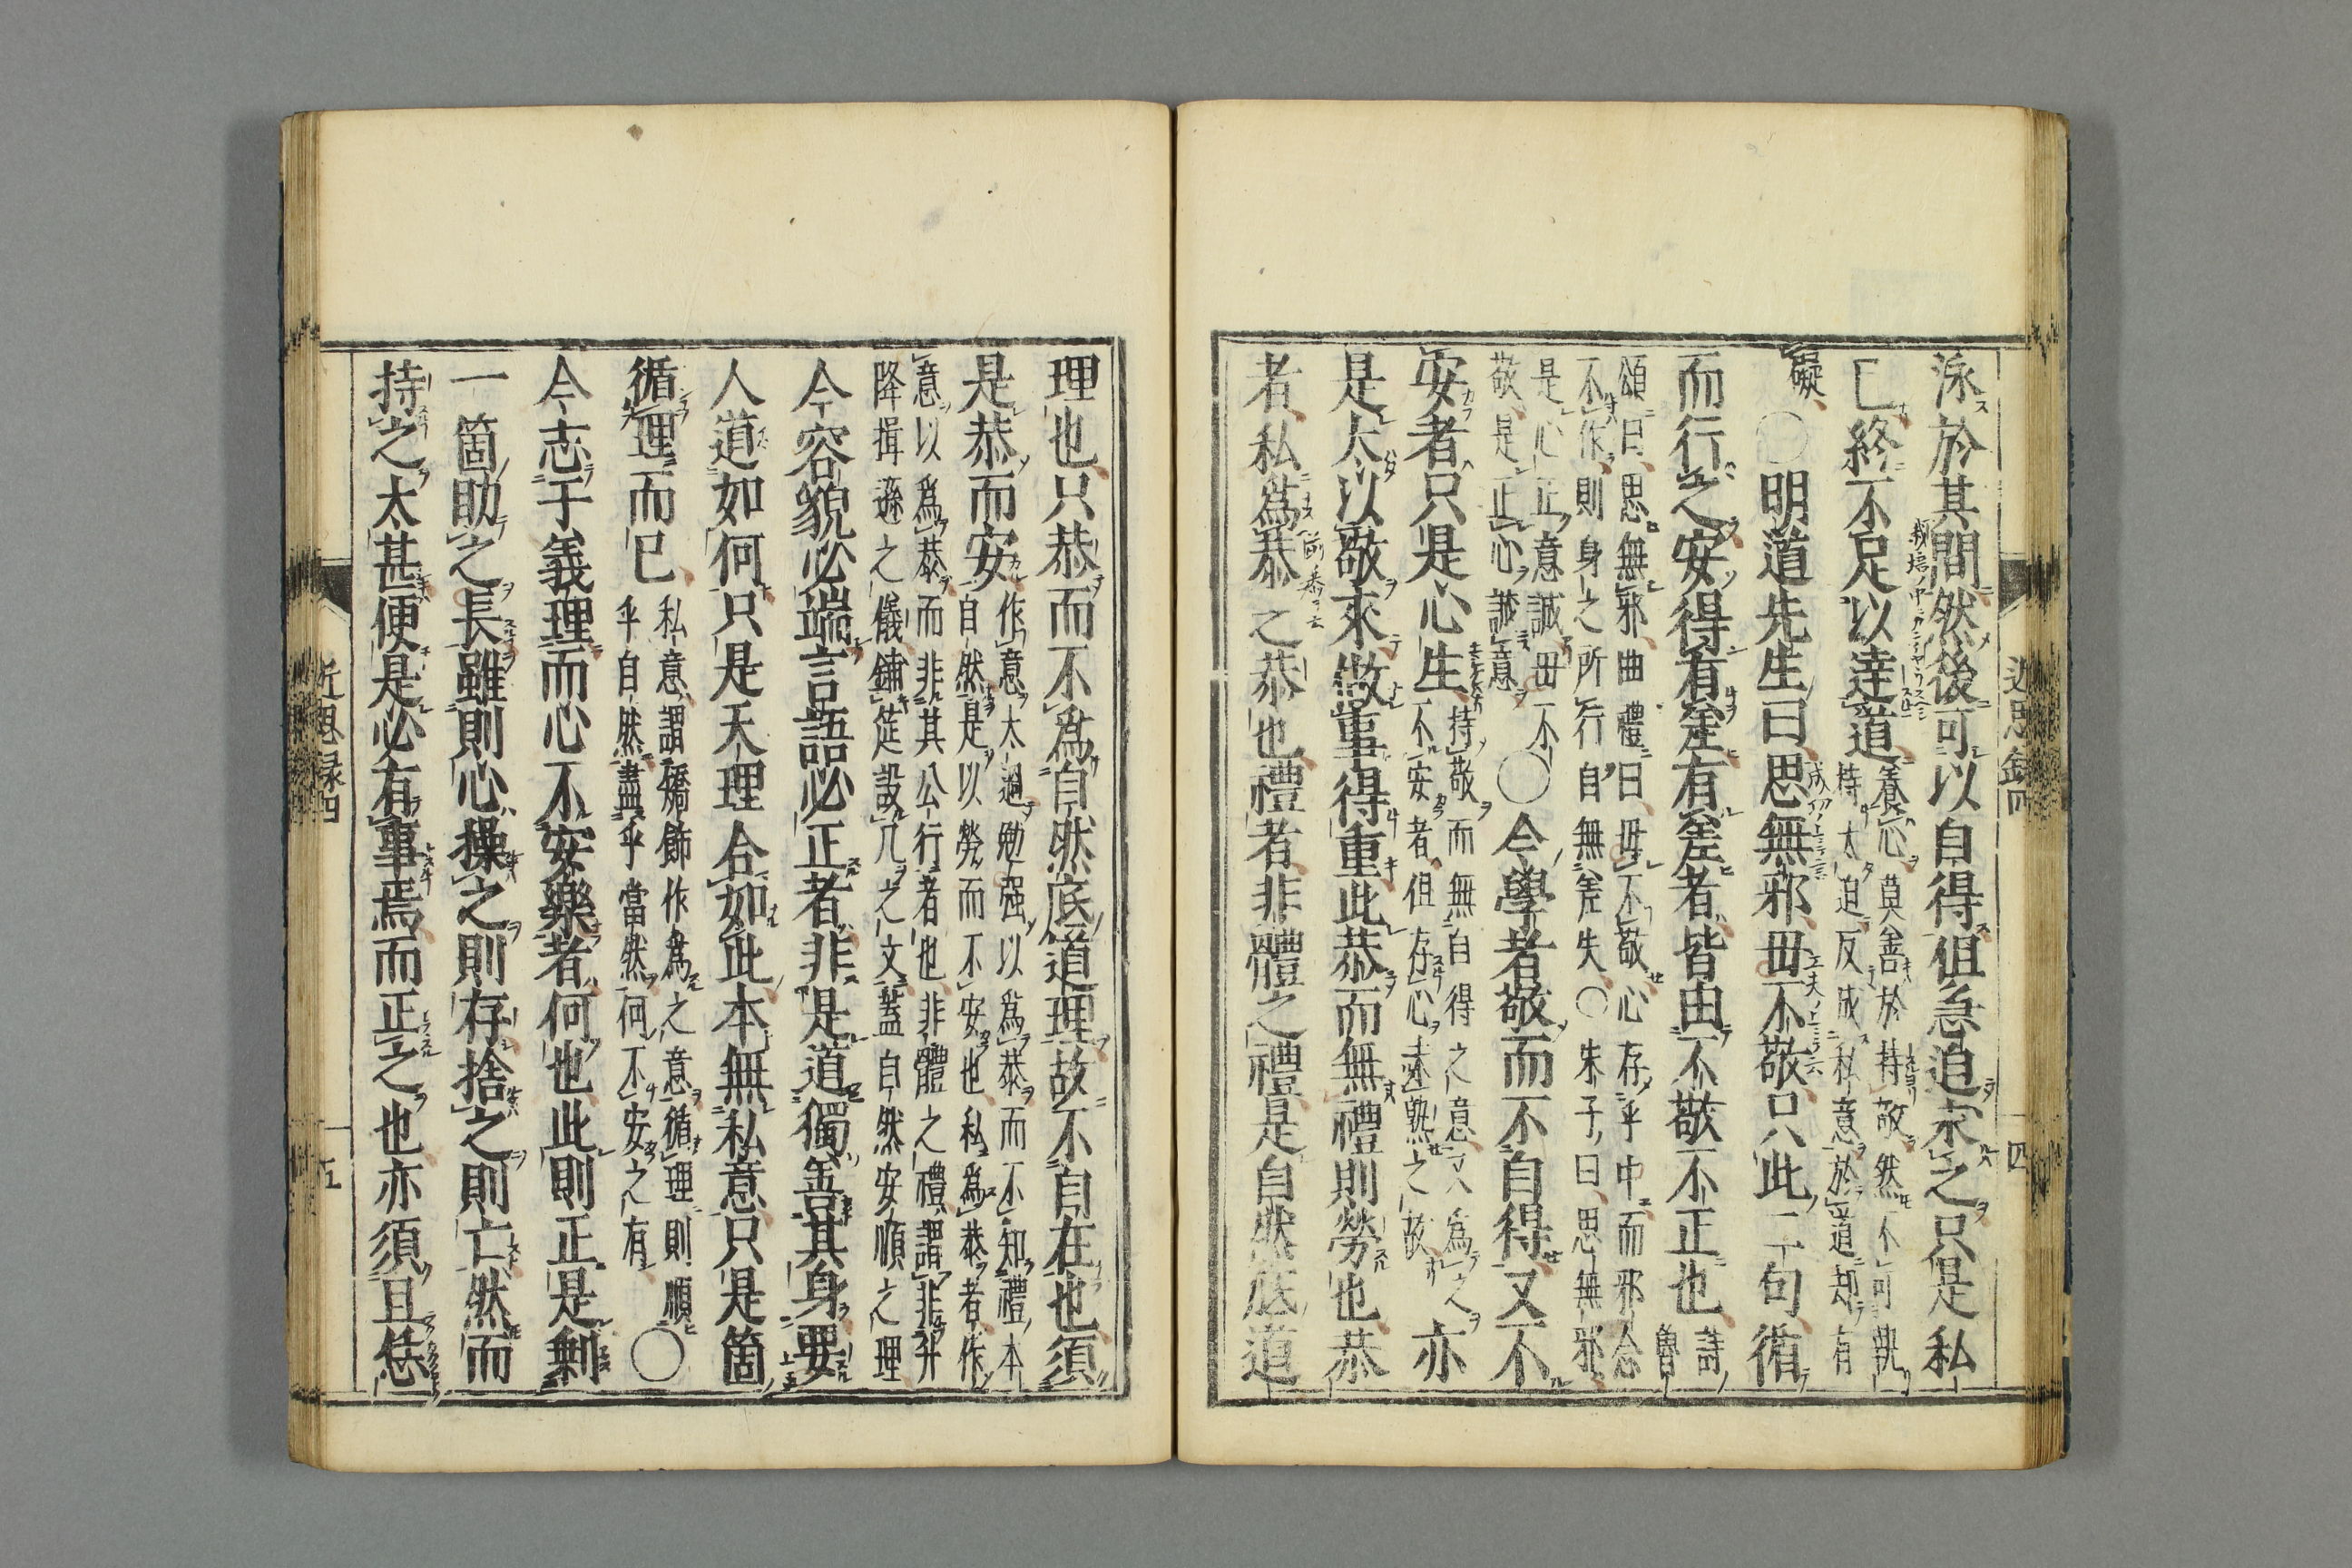 泳於其間然後可以自得但急迫求之只是私
已終不足以達道
養心莫善於持敬然不可執
持太迫反成私意於道却有
礙
○明道先生曰思無邪毋不敬只此二句循
而行之安得有差有差者皆由不敬不正也
詩
魯
頌曰思無邪曲禮曰毋不敬心存乎中而邪念
不作則身之所行自無差失○朱子曰思無邪
是心正意誠毋不
敬是正心誠意
○今學者敬而不自得又不
安者只是心生
持敬而無自得之意又為之
不安者但存心未熟之故
亦
是太以敬來做事得重此恭而無禮則勞也恭
者私為恭之恭也禮者非體之禮是自然底道
近思録四
四
理也只恭而不為自然底道理故不自在也須
是恭而安
作意太過勉强以為恭而不知禮本
自然是以勞而不安也私為恭者作
意以為恭而非其公行者也非體之禮謂非升
降揖遜之儀鋪筵設几之文蓋自然安順之理
今容貌必端言語必正者非是道獨善其身要
人道如何只是天理合如此本無私意只是箇
循理而已
私意謂矯飾作為之意循理則順
乎自然盡乎當然何不安之有
○
今志于義理而心不安樂者何也此則正是剰
一箇助之長雖則心操之則存捨之則亡然而
持之太甚便是必有事焉而正之也亦須且恁
近思録四
五